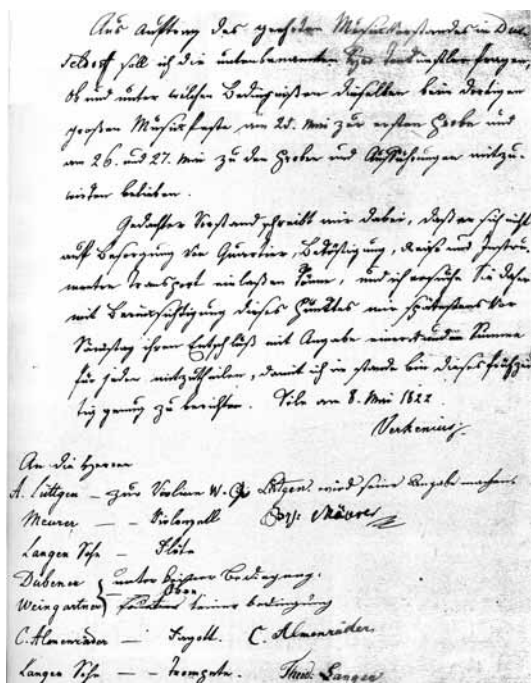 Aus Auftrag des geehrten Musikvorstandes in Düs-
seldorf soll ich die untenbenannten Tonkünstler fragen,
ob und unter welchen Bedingnißen dieselben beim dortigen
großen Musikfeste am 25. Mai zur ersten Probe und
am 26. und 27. Mai zu den Proben und Aufführungen mitzu-
wirken belieben.
Gedachter Vorstand schreibt mir dabei, daß er sich nicht
auf Besorgung von Quartier, Beköstigung, Reise und Instru-
menten Transport einlaßen könne, und ich ersuche Sie daher
mit Berücksichtigung dieses Punktes mir spätestens
Samstag ihren Entschluß mit Angabe einer runden Summe
für jeden mitzutheilen, damit ich im stande bin dieses frühzei-
tig genug zu berichten. Cöln am 8. Mai 1822
Verkenius
An die Herren
A. Lüttgen – zur Violine Lüttgen wird seine Angabe machen
Meurer – – Violonzell Jos. Meurer
Langen Sohn – Flöte
Dübener unter keiner Bedingung.
Weingartner Oboe keiner bedingung
C. Almenräder – Fagott. C. Almenräder
Langen Sohn – – Trompete. Theod. Langen